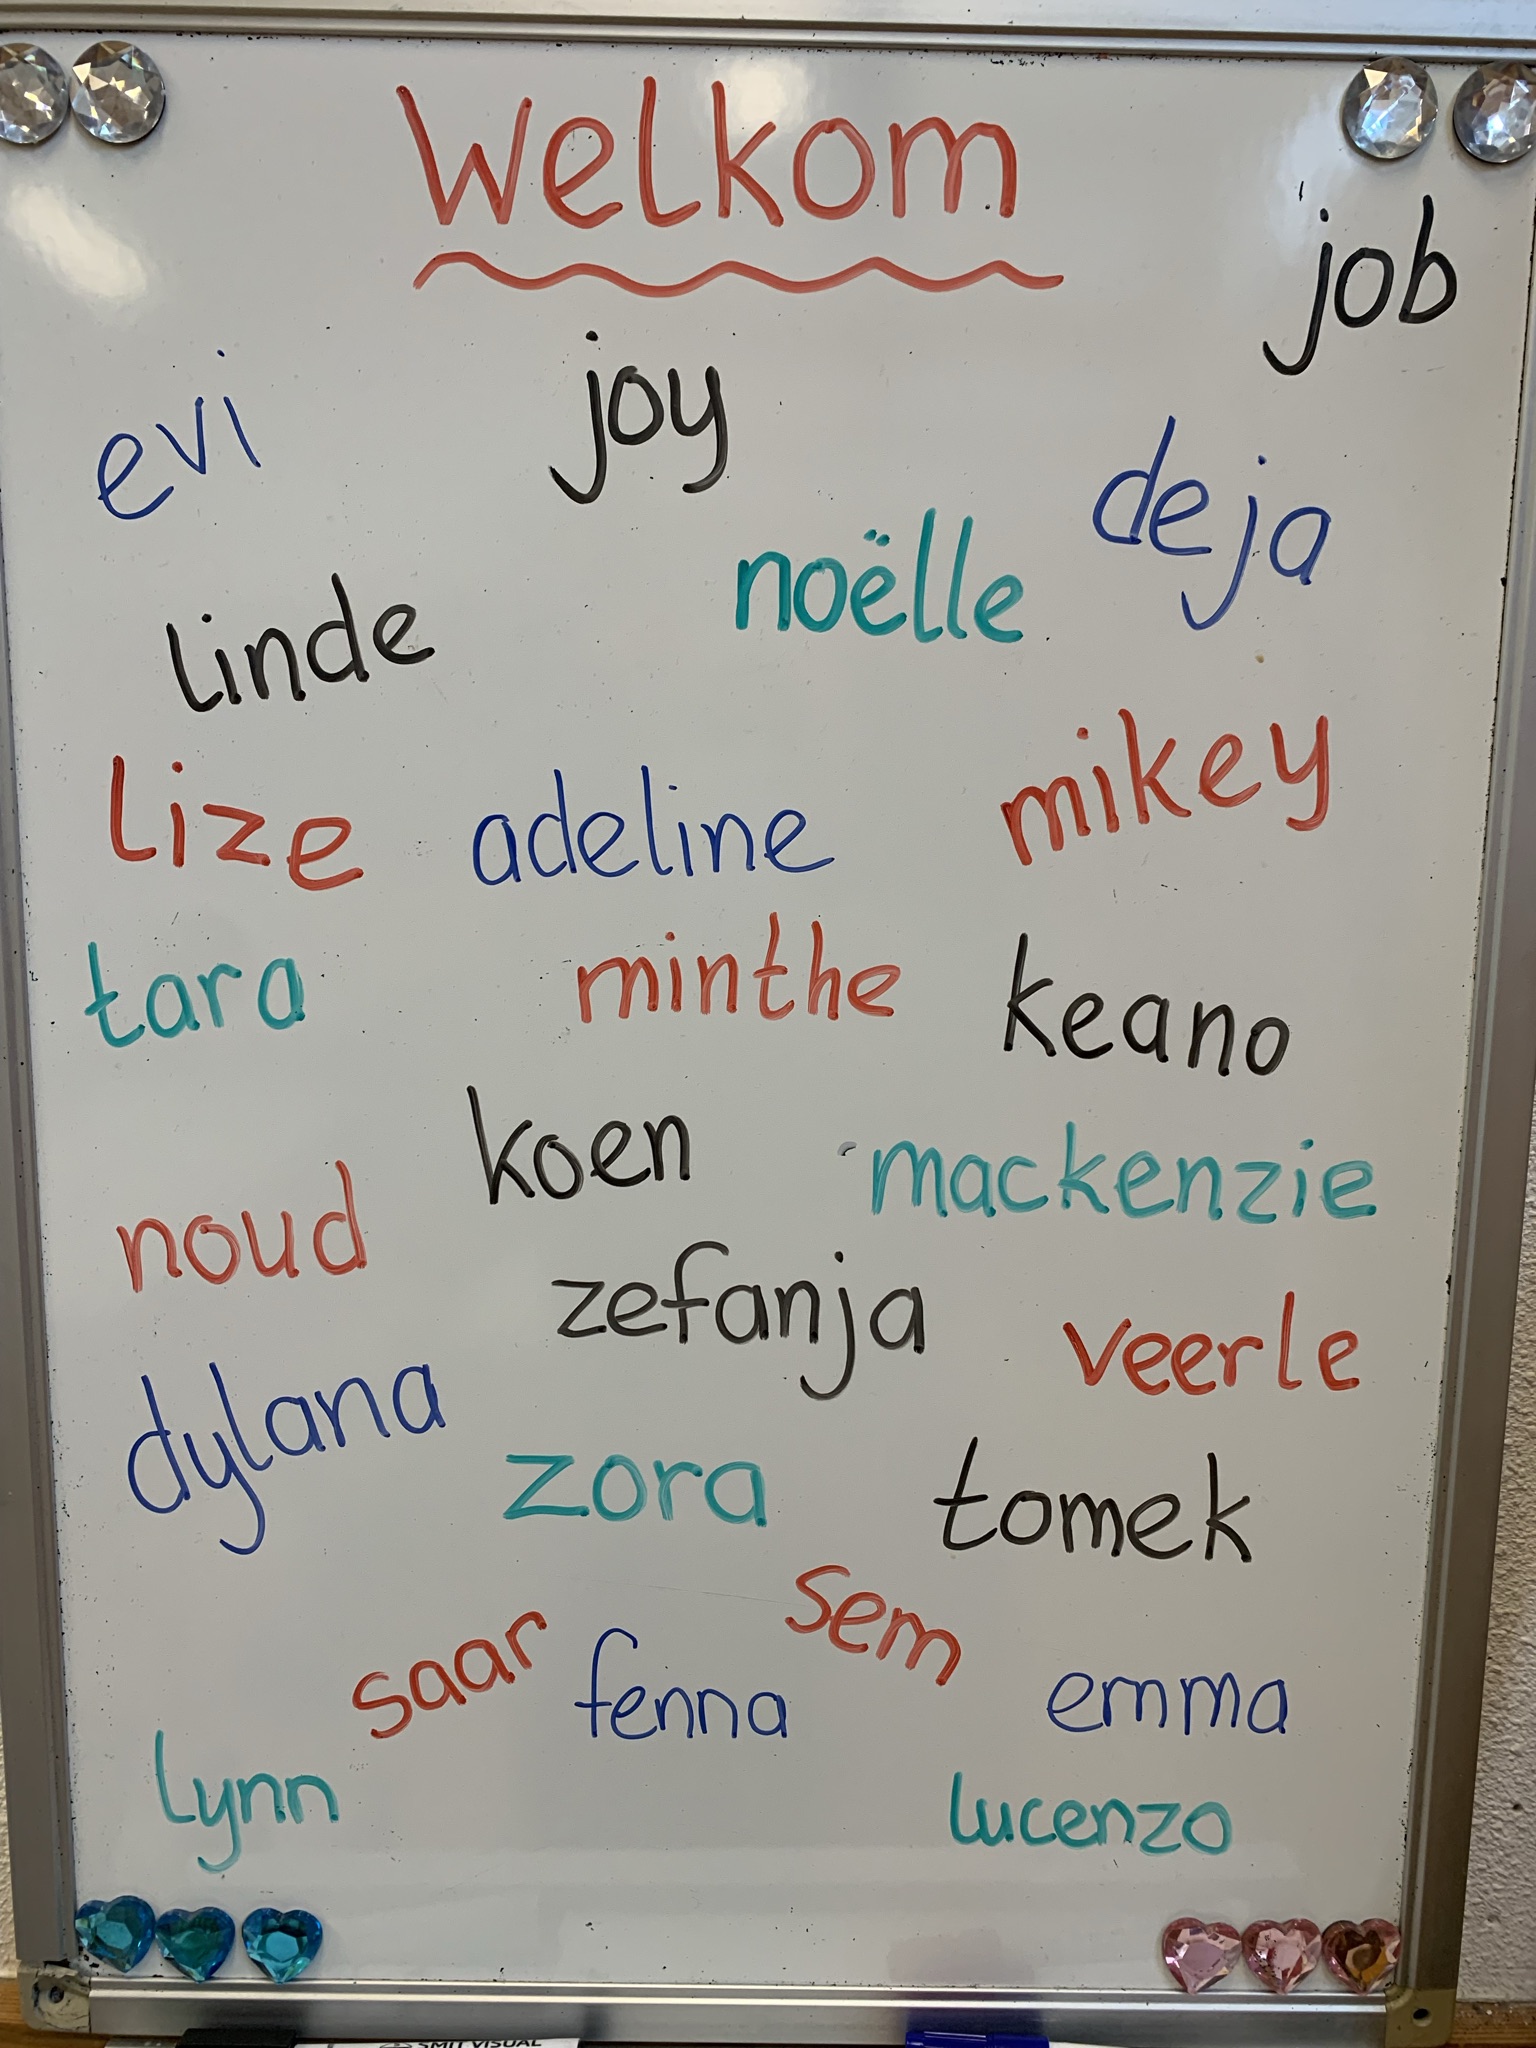 Welkom
job
evi
joy
deja
noëlle
linde
mikey
lize
adeline
tara
minthe
keano
koen
mackenzie
noud
zefanja
veerle
dylana
zora
tomek
sem
saar
fenna
emma
lynn
lucenzo
SMIT VISUAL